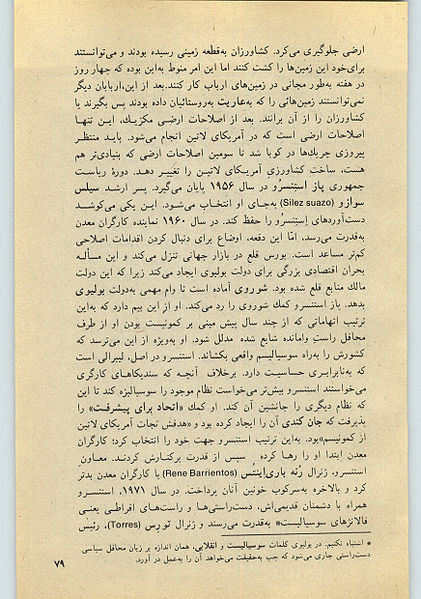 ارضی جلوگیری می‌کرد. کشاورزان به‌قطعه زمینی رسیده بودند و می‌توانستند
برای‌خود این زمین‌ها را کشت کنند اما این امر منوط به‌این بوده که چهار روز
در هفته به‌طور مجانی در زمین‌های ارباب کار کنند. بعد از این، اربابان دیگر
نمی‌توانستند زمین‌هائی را که به‌عاریت به‌روستائیان داده بودند پس بگیرند یا
کشاورزان را از آن برانند. بعد از اصلاحات ارضی مکزیک، این تنها
اصلاحات ارضی است که در آمریکای لاتین انجام می‌شود. باید منتظر
پیروزی چریک‌ها در کوبا شد تا سومین اصلاحات ارضی که بنیادی‌تر هم
هست، ساخت کشاورزی آمریکای لاتین را تغییر دهد. دورهٔ ریاست
جمهوری پاز استنسرو در سال ۱۹۵۶ پایان می‌گیرد. پسر ارشد سیلس
سوازو (Silez suazo) به‌جای او انتخاب می‌شود. این یکی می‌کوشد
دست‌آوردهای استنسرو را حفظ کند. در سال ۱۹۶۰ نماینده کارگران معدن
به‌قدرت می‌رسد، امّا این دفعه، اوضاع برای دنبال کردن اقدامات اصلاحی
کم‌تر مساعد است. بورس قلع در بازار جهانی تنزل می‌کند و این مسأله
بحران اقتصادی بزرگی برای دولت بولیوی ایجاد می‌کند زیرا که این دولت
مالک منابع قلع شده بود. شوروی آماده است تا وام مهمی به‌دولت بولیوی
بدهد. پاز استنسرو کمک شوروی را رد می‌کند. او از این بیم دارد که به‌این
ترتیب اتهاماتی که از چند سال پیش مبنی بر کمونیست بودن او از طرف
محافل راست وامانده شایع شده مدلل شود. او به‌ویژه از این می‌ترسد که
کشورش را به‌راه سوسیالیسم واقعی بکشاند. استنسرو در اصل، لیبرالی است
که به‌نابرابری حساسیت دارد. برخلاف آنچه که سندیکاهای کارگری
می‌خواستند استنسرو بیش‌تر می‌خواست نظام موجود را سوسیالیزه کند تا این
که نظام دیگری را جانشین آن کند. او کمک «اتحاد برای پیشرفت» را
پذیرفت که جان کندی آن را ایجاد کرده بود و «هدفش نجات آمریکای لاتین
از کمونیسم»بود. به‌این ترتیب استنسرو جهت خود را انتخاب کرد؛ کارگران
معدن ابتدا او را رها کرده سپس از قدرت برکنارش کردند. معاون
استنسرو، ژنرال رُنه باری‌اِینتُس (Rene Barrientos) با کارگران معدن بدتر
کرد و بالاخره به‌سرکوب خونین آنان پرداخت. در سال ۱۹۷۱، استنسرو
همراه با دشمنان قدیمی‌اش، دست‌راستی‌ها و راست‌های افراطی یعنی
فالانژهای سوسیالیست* به‌قدرت می‌رسند و ژنرال تورِس (Torres)، رئیس
* اشتباه نکنیم. در بولیوی کلمات سوسیالیست و انقلابی، همان اندازه بر زبان محافل سیاسی
دست‌راستی جاری می‌شود که چپ به‌حقیقت می‌خواهد آن را به‌عمل در آورد.
۷۹